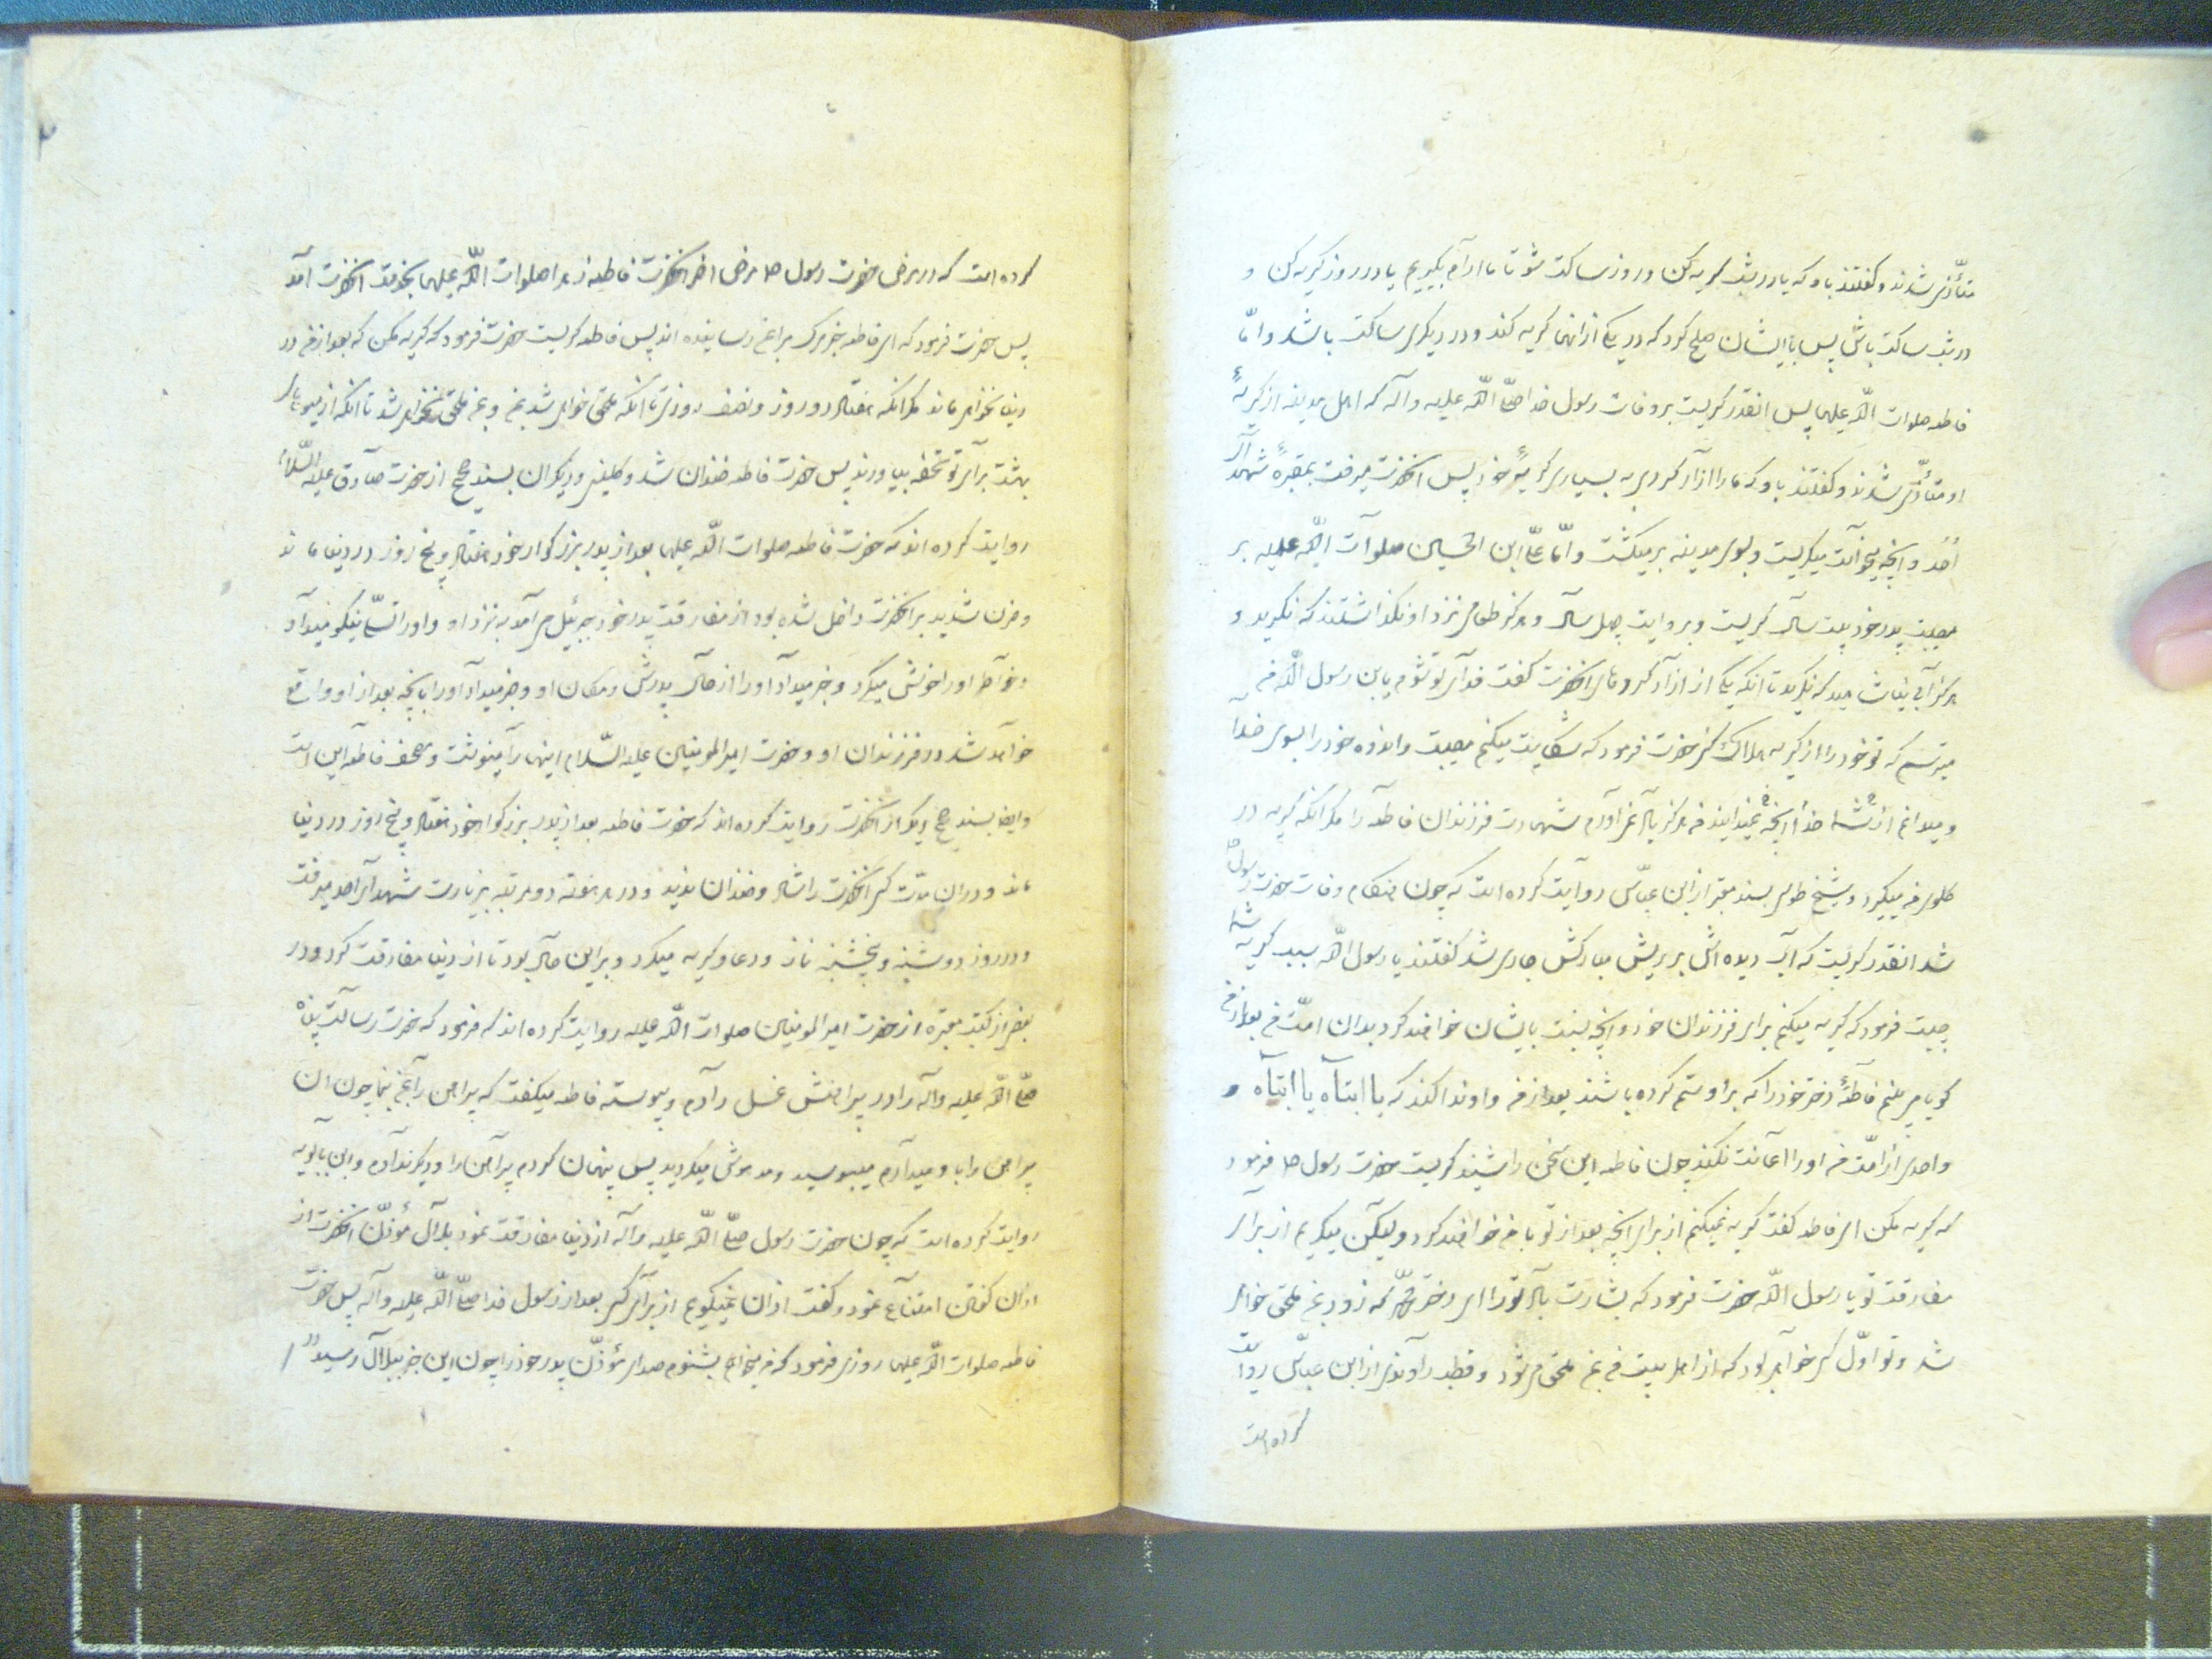 متأذّی شدند و گفتند باو که یا در شب گریه کن و روز ساکت شو تا ما آرام بگیریم یا در روز گریه کن و
در شب ساکت باش پس با ایشان صلح کرد که در یکی از انها گریه کند و در دیگری ساکت باشد و امّا
فاطمه صلوات اللّه علیها پس انقدر گریست بر وفات رسول خدا صلّی اللّه علیه و آله که اهل مدینه از گریهٔ
او متأذّی شدند و گفتند باو که ما را آزار کردی به بسیاری گریهٔ خود پس انحضرت میرفت بمقبرهٔ شهدای
اُحُد و انچه میخواست میگریست و بسوی مدینه برمیگشت و امّا علیّ ابن الحسین صلوات اللّه علیه بر
مصیبت پدر خود بیست سال گریست و بروایتی چهل سال و هرگز طعامی نزد او نگذاشتند که نگرید و
هرگز آبی نیاشامید که نگرید تا انکه یکی از ازاد کردهای انحضرت گفت فدای تو شوم یابن رسول اللّه من
میترسم که تو خود را از گریه هلاک کنی حضرت فرمود که شکایت میکنم مصیبت و اندوه خود را بسوی خدا
و میدانم از خدا انچه شما نمیدانید من هرگز بیاد نمی آورم شهادت فرزندان فاطمه را مگر انکه گریه در
گلوی من میگیرد و شیخ طوسی بسند معتبر از ابن عبّاس روایت کرده است که چون هنگام وفات حضرت رسول ص
شد انقدر گریست که آب دیده اش بر ریش مبارکش جاری شد گفتند یا رسول اللّه سبب گریه شما
چیست فرمود که گریه میکنم برای فرزندان خود و انچه نسبت بایشان خواهند کرد بدان امّت من بعد از من
گویا می بینم فاطمهٔ دختر خود را که بر او ستم کرده باشند بعد از من و او ندا کند که یا ابتاه یا ابتاه و
واحدی از امّت من او را اعانت نکند چون فاطمه این سخن را شنید گریست حضرت رسول ص فرمود
که گریه مکن ای فاطمه گفت گریه نمیکنم از برای انچه بعد از تو با من خواهند کرد ولیکن میگریم از برای
مفارقت تو یا رسول اللّه حضرت فرمود که بشارت باد تو را ای دختر محمّد که زود بمن ملحق خواهی
شد و تو اوّل کسی خواهی بود که از اهل بیت من بمن ملحق میشود و قطب راوندی از ابن عبّاس روایت
کرده است
کرده است که در مرض حضرت رسول ص مرض اخر انحضرت فاطمه زهرا صلوات اللّه علیها بخدمت انحضرت آمد
پس حضرت فرمود که ای فاطمه خبر مرگ مرا بمن رسانیده اند پس فاطمه گریست حضرت فرمود که گریه مکن که بعد از من در
دنیا نخواهی ماند مگر انکه هفتاد و دو روز و نصف روزی تا انکه ملحق خواهی شد بمن و بمن ملحق نخواهی شد تا انکه از میوهای
بهشت برای تو تحفه بیاورند پس حضرت فاطمه خندان شد و کلینی و دیگران بسند صحیح از حضرت صادق علیه السّلام
روایت کرده اند که حضرت فاطمه صلوات اللّه علیها بعد از پدر بزرگوار خود هفتاد و پنج روز در دنیا ماند
و حزن شدید بر انحضرت داخل شده بود از مفارقت پدر خود جبرئیل می آمد به نزد او و او را تسلّی نیکو میداد
و خواطر او را خوش میکرد و خبر میداد او را از حال پدرش و مکان او و خبر میداد او را بانچه بعد از او واقع
خواهد شد در فرزندان او و حضرت امیر المومنین علیه السّلام اینها را مینوشت و مصحف فاطمه این است
و ایضا بسند صحیح دیگر از انحضرت روایت کرده اند که حضرت فاطمه بعد از پدر بزرگوار خود هفتاد و پنج روز در دنیا
ماند و در ان مدّت کسی انحضرت را شاد و خندان ندید و در هر هفته دو مرتبه بزیارت شهدای احد میرفت
و در روز دوشنبه و پنجشنبه نماز و دعا و گریه میکرد و بر این حال بود تا از دنیا مفارقت کرد و در
بعضی از کتب معتبره از حضرت امیر المومنین صلوات اللّه علیه روایت کرده اند که فرمود که حضرت رسالت پناه
صلّی اللّه علیه و آله را در پیراهنش غسل دادم و پیوسته فاطمه میگفت که پیراهن را بمن بنما چون ان
پیراهن را باو میدادم میبوسید و مدهوش میگردید پس پنهان کردم پیراهن را و دیگر ندادم و ابن بابویه
روایت کرده است که چون حضرت رسول صلّی اللّه علیه و آله از دنیا مفارقت نمود بلال مؤذّن انحضرت از
اذان گفتن امتناع نمود و گفت اذان نمیگویم از برای کسی بعد از رسول خدا صلّی اللّه علیه و آله پس حضرت
فاطمه صلوات اللّه علیها روزی فرمود که من میخواهم بشنوم صدای مؤذّن پدر خود را چون این خبر ببلال رسید در